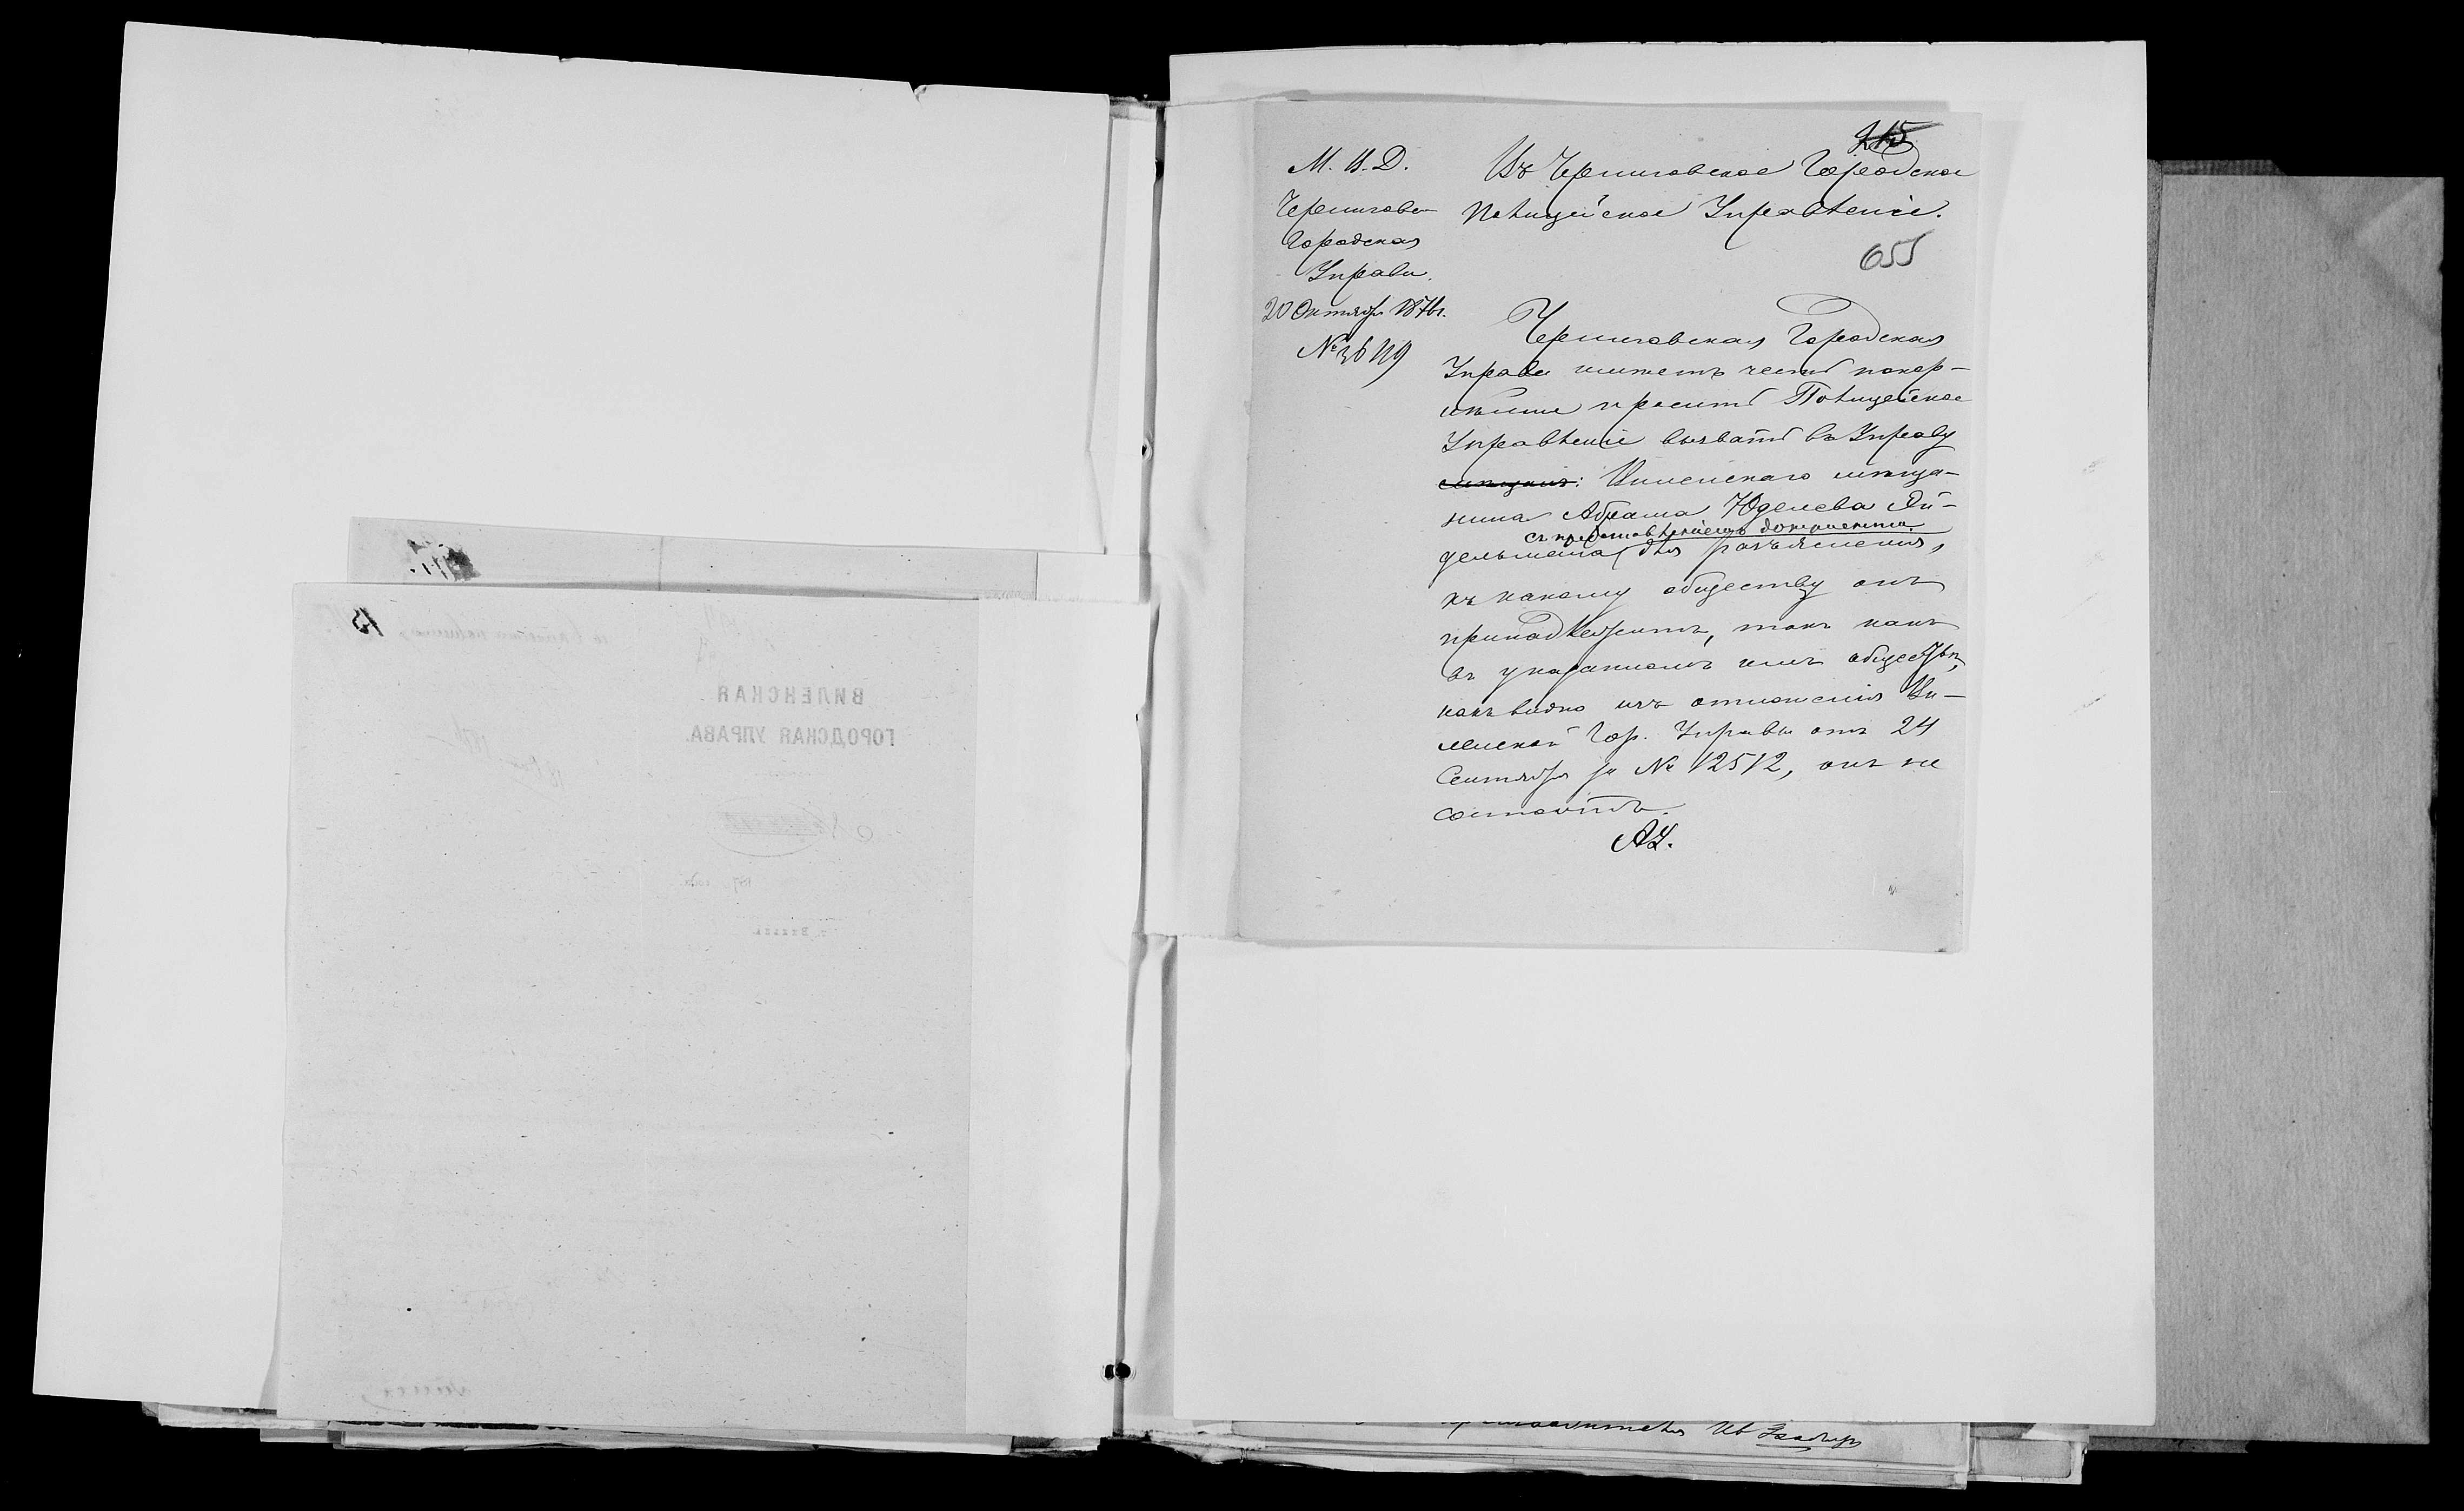 215
М. В. Д.
Чернигов.
Городская
Управа.
20 Октября 1876 г.
№ 36119
Въ Черниговское Городское
Полицейское Управленіе.
655
Черниговская Городская
Управа имѣетъ честь покор-
нѣйше просить Полицейское
Управленіе вызвать въ Управу
Виленскаго мѣща-
нина Абрама Юделева Эй-
съ представленіемъ документа
дельмана для разъясненія,
къ какому обществу онъ
принадлежитъ, такъ какъ
въ указанномъ имъ обществѣ,
какъ видно изъ отношенія Ви-
ленской Гор. Управы отъ 24
Сентября за № 12512, онъ не
состоитъ.
ВИЛЕНСКАЯ
ГОРОДСКАЯ УПРАВА.